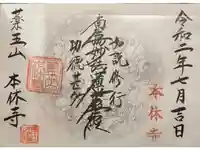 令和二年七月吉日
本休寺
如説修行
南無妙法蓮華経
功徳甚多
薬王山 本休寺